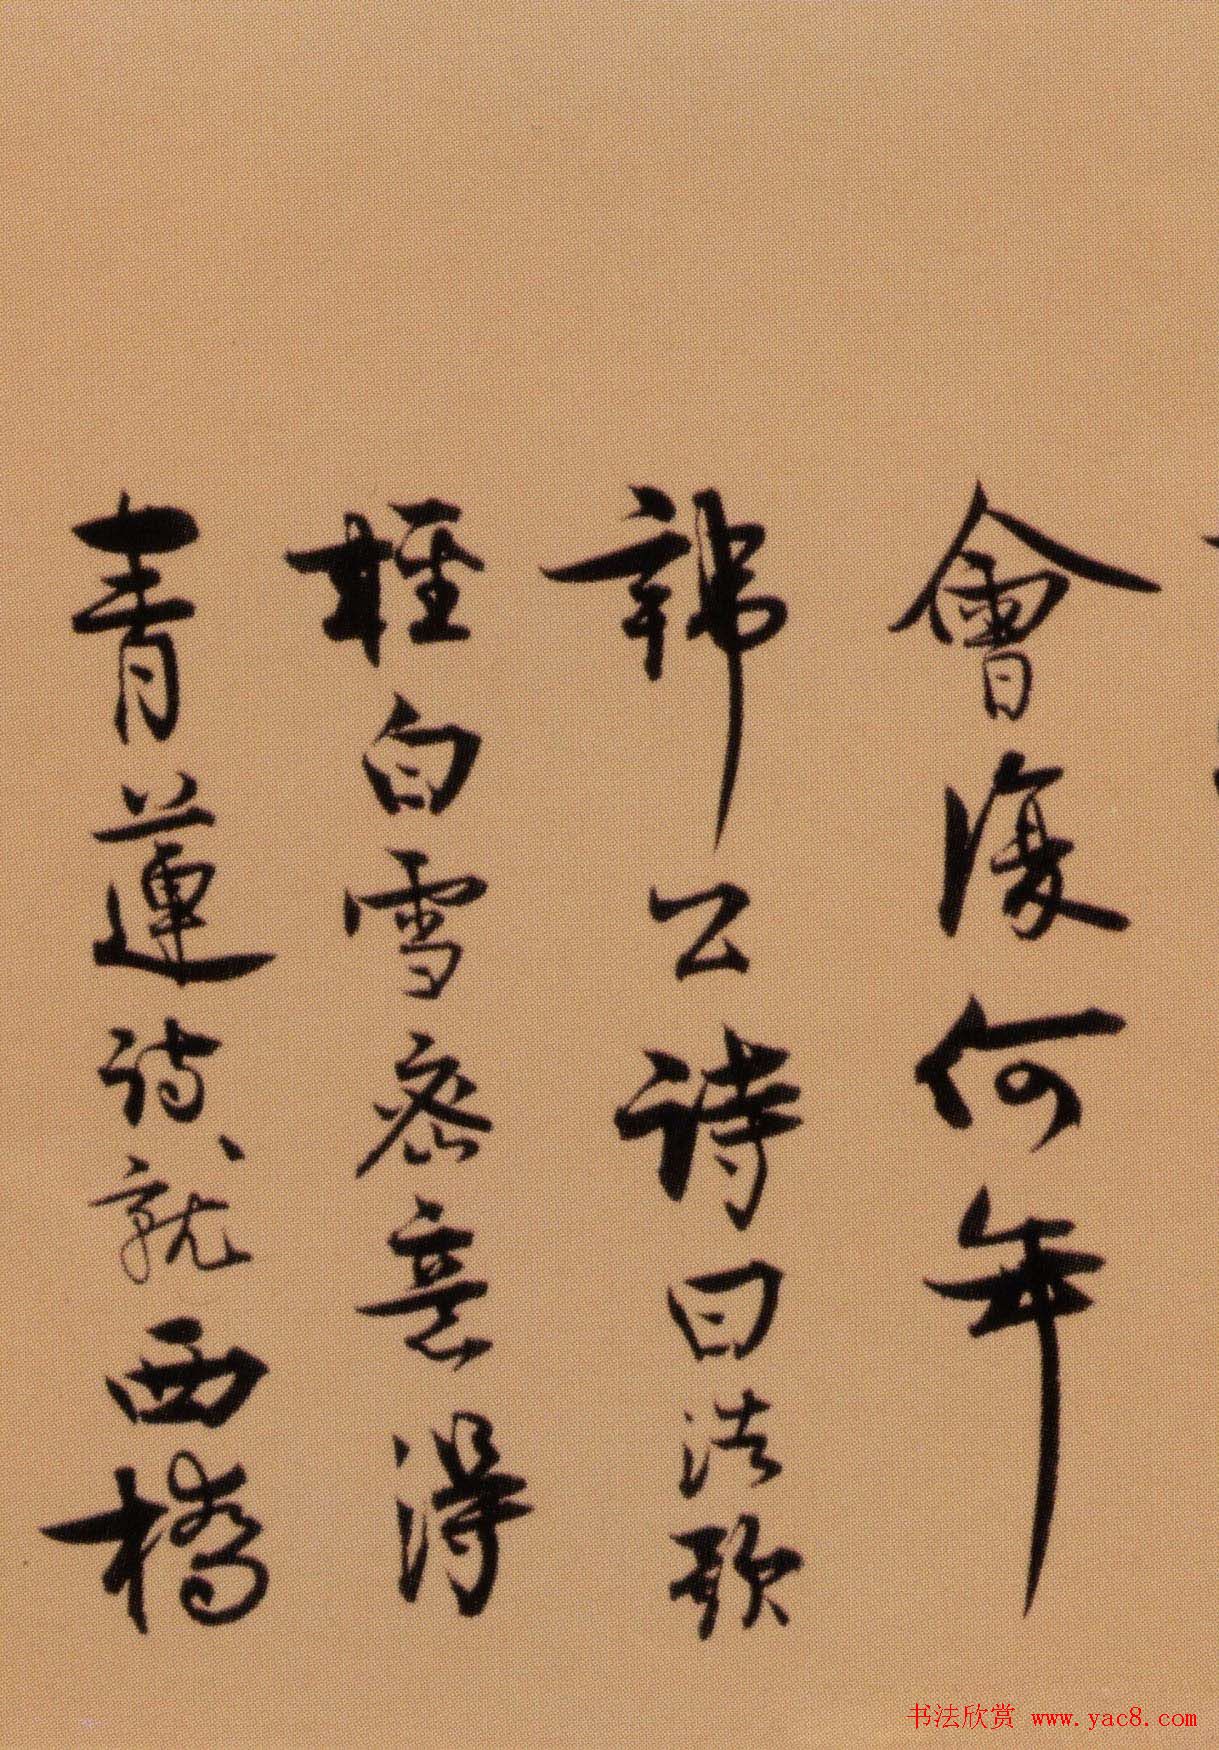 會復何年
公詩曰法歌
白雪密意得
青蓮詩就西橋
书法欣赏 www.yac8.com